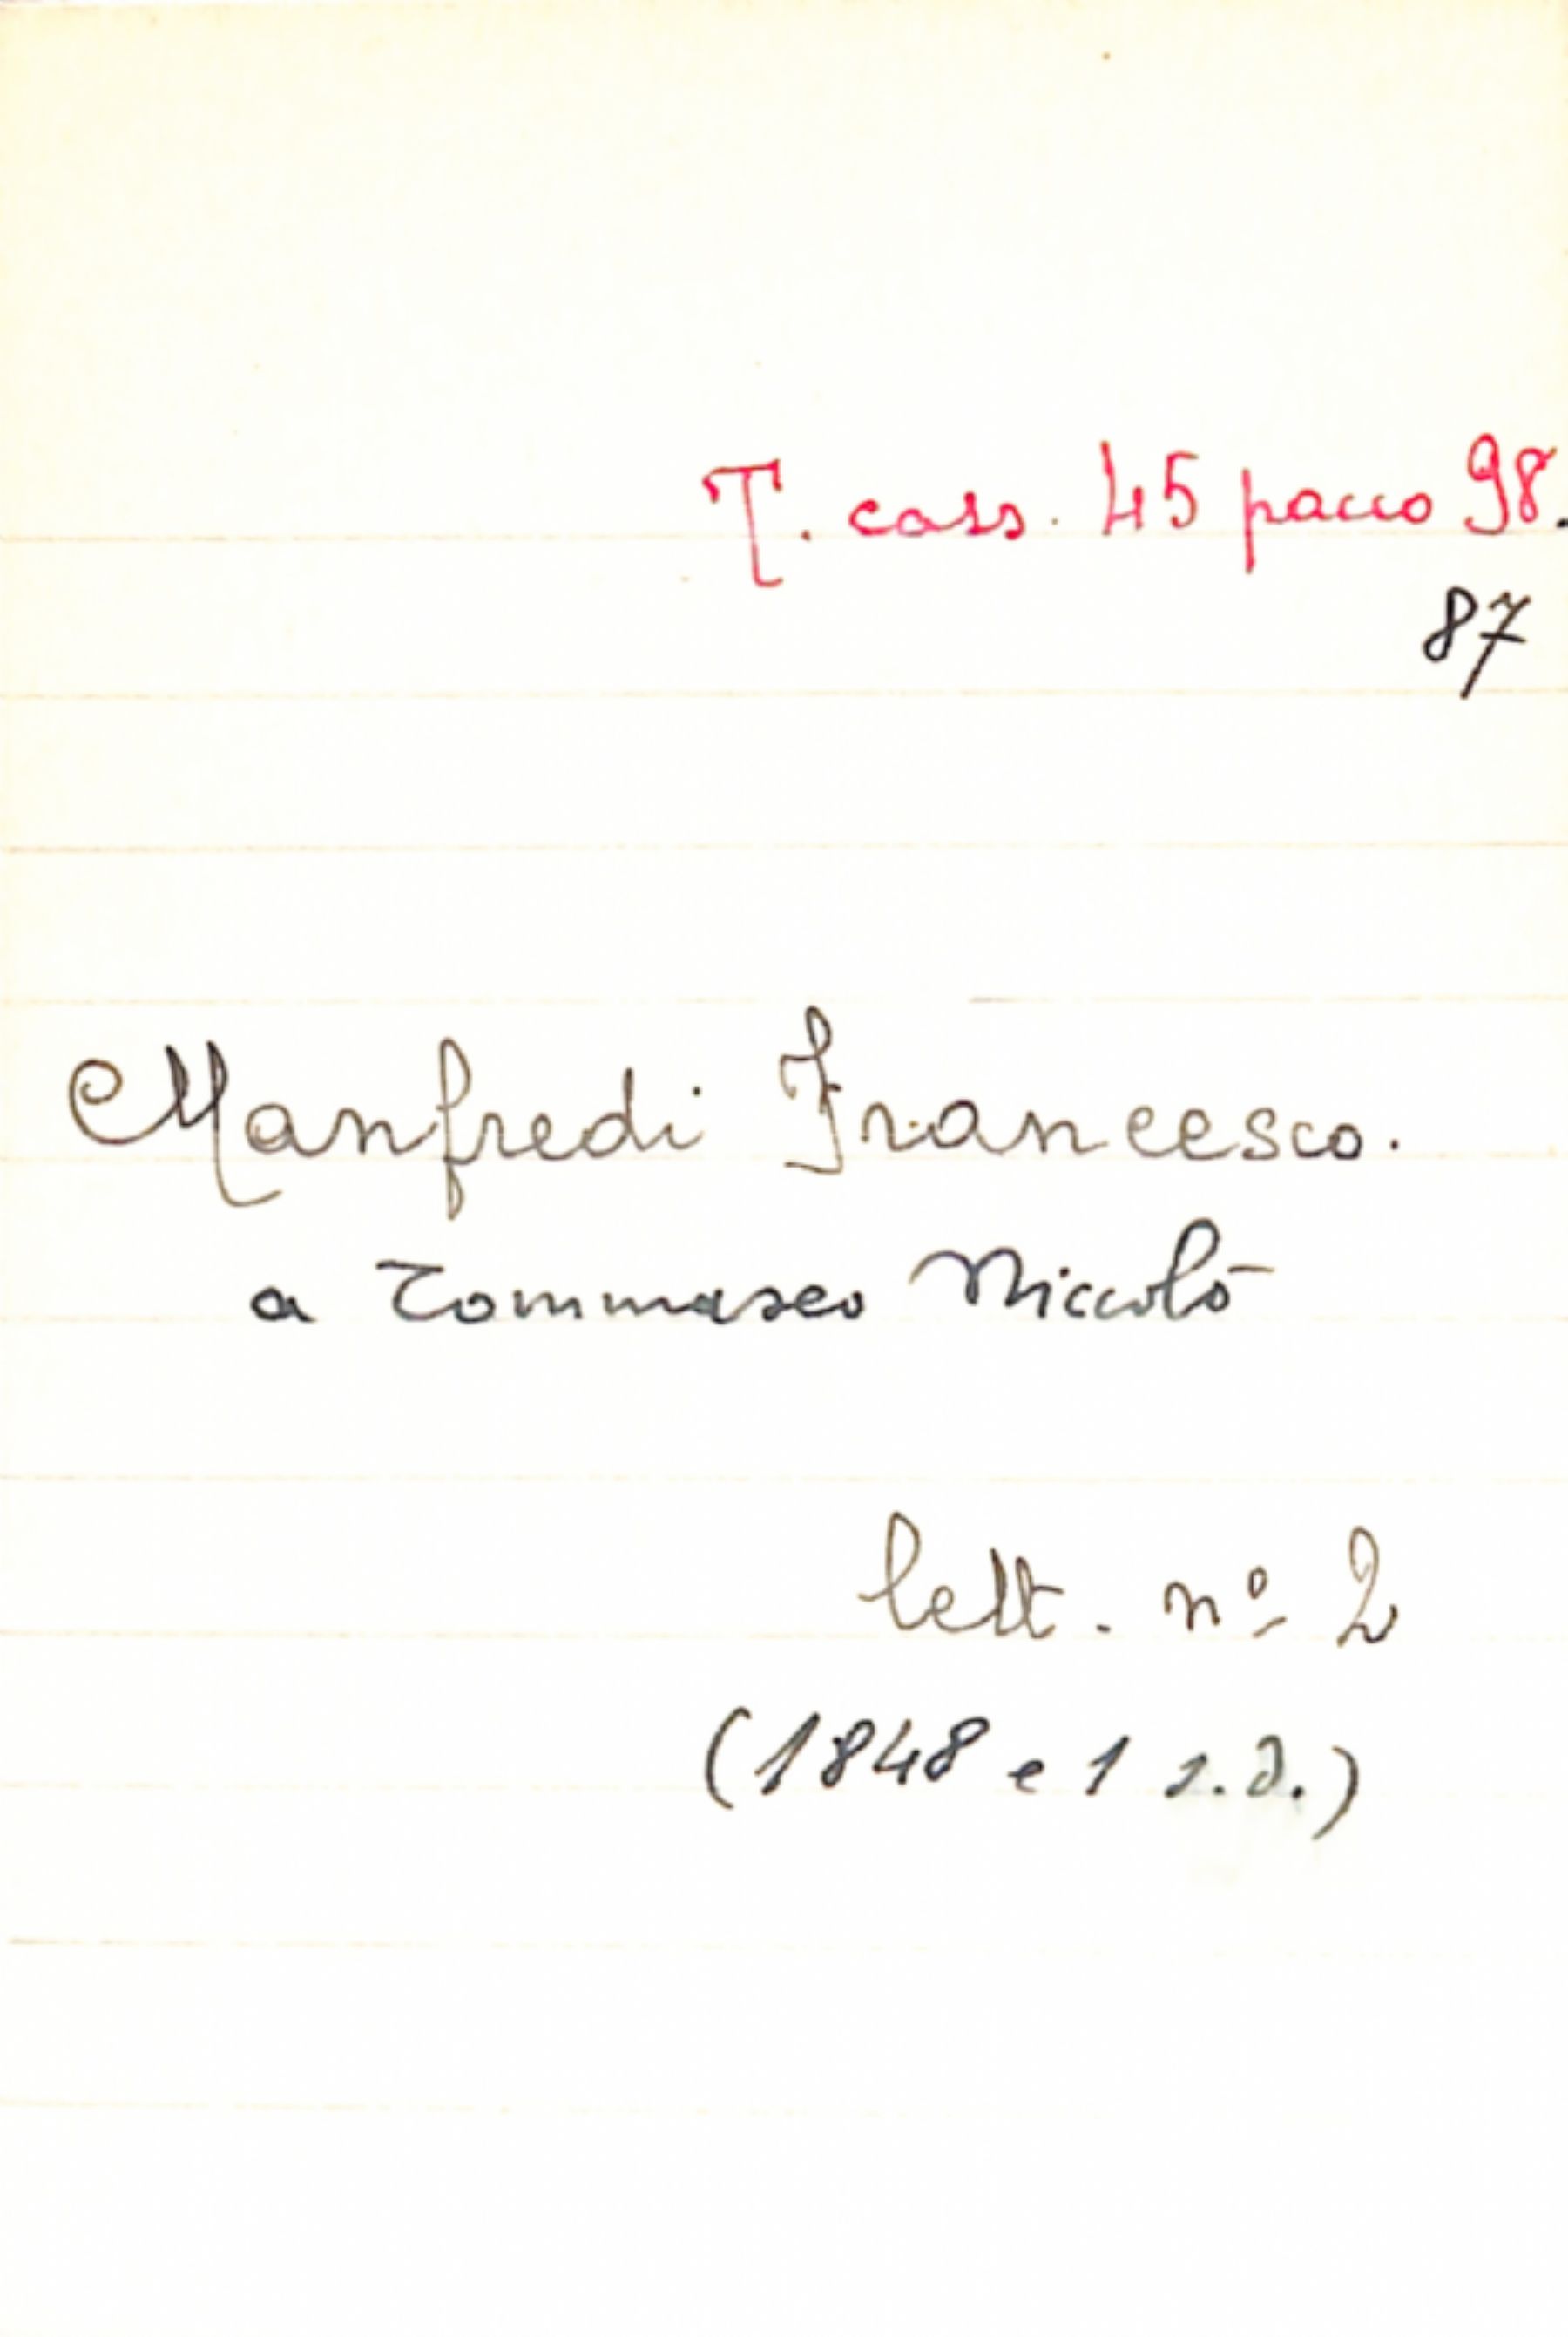 T. cass. 45 pacco 98.
87
Manfredi Francesco.
a Tommaseo Niccolò
lett. nº 2
(1848 e 1 s.d.)